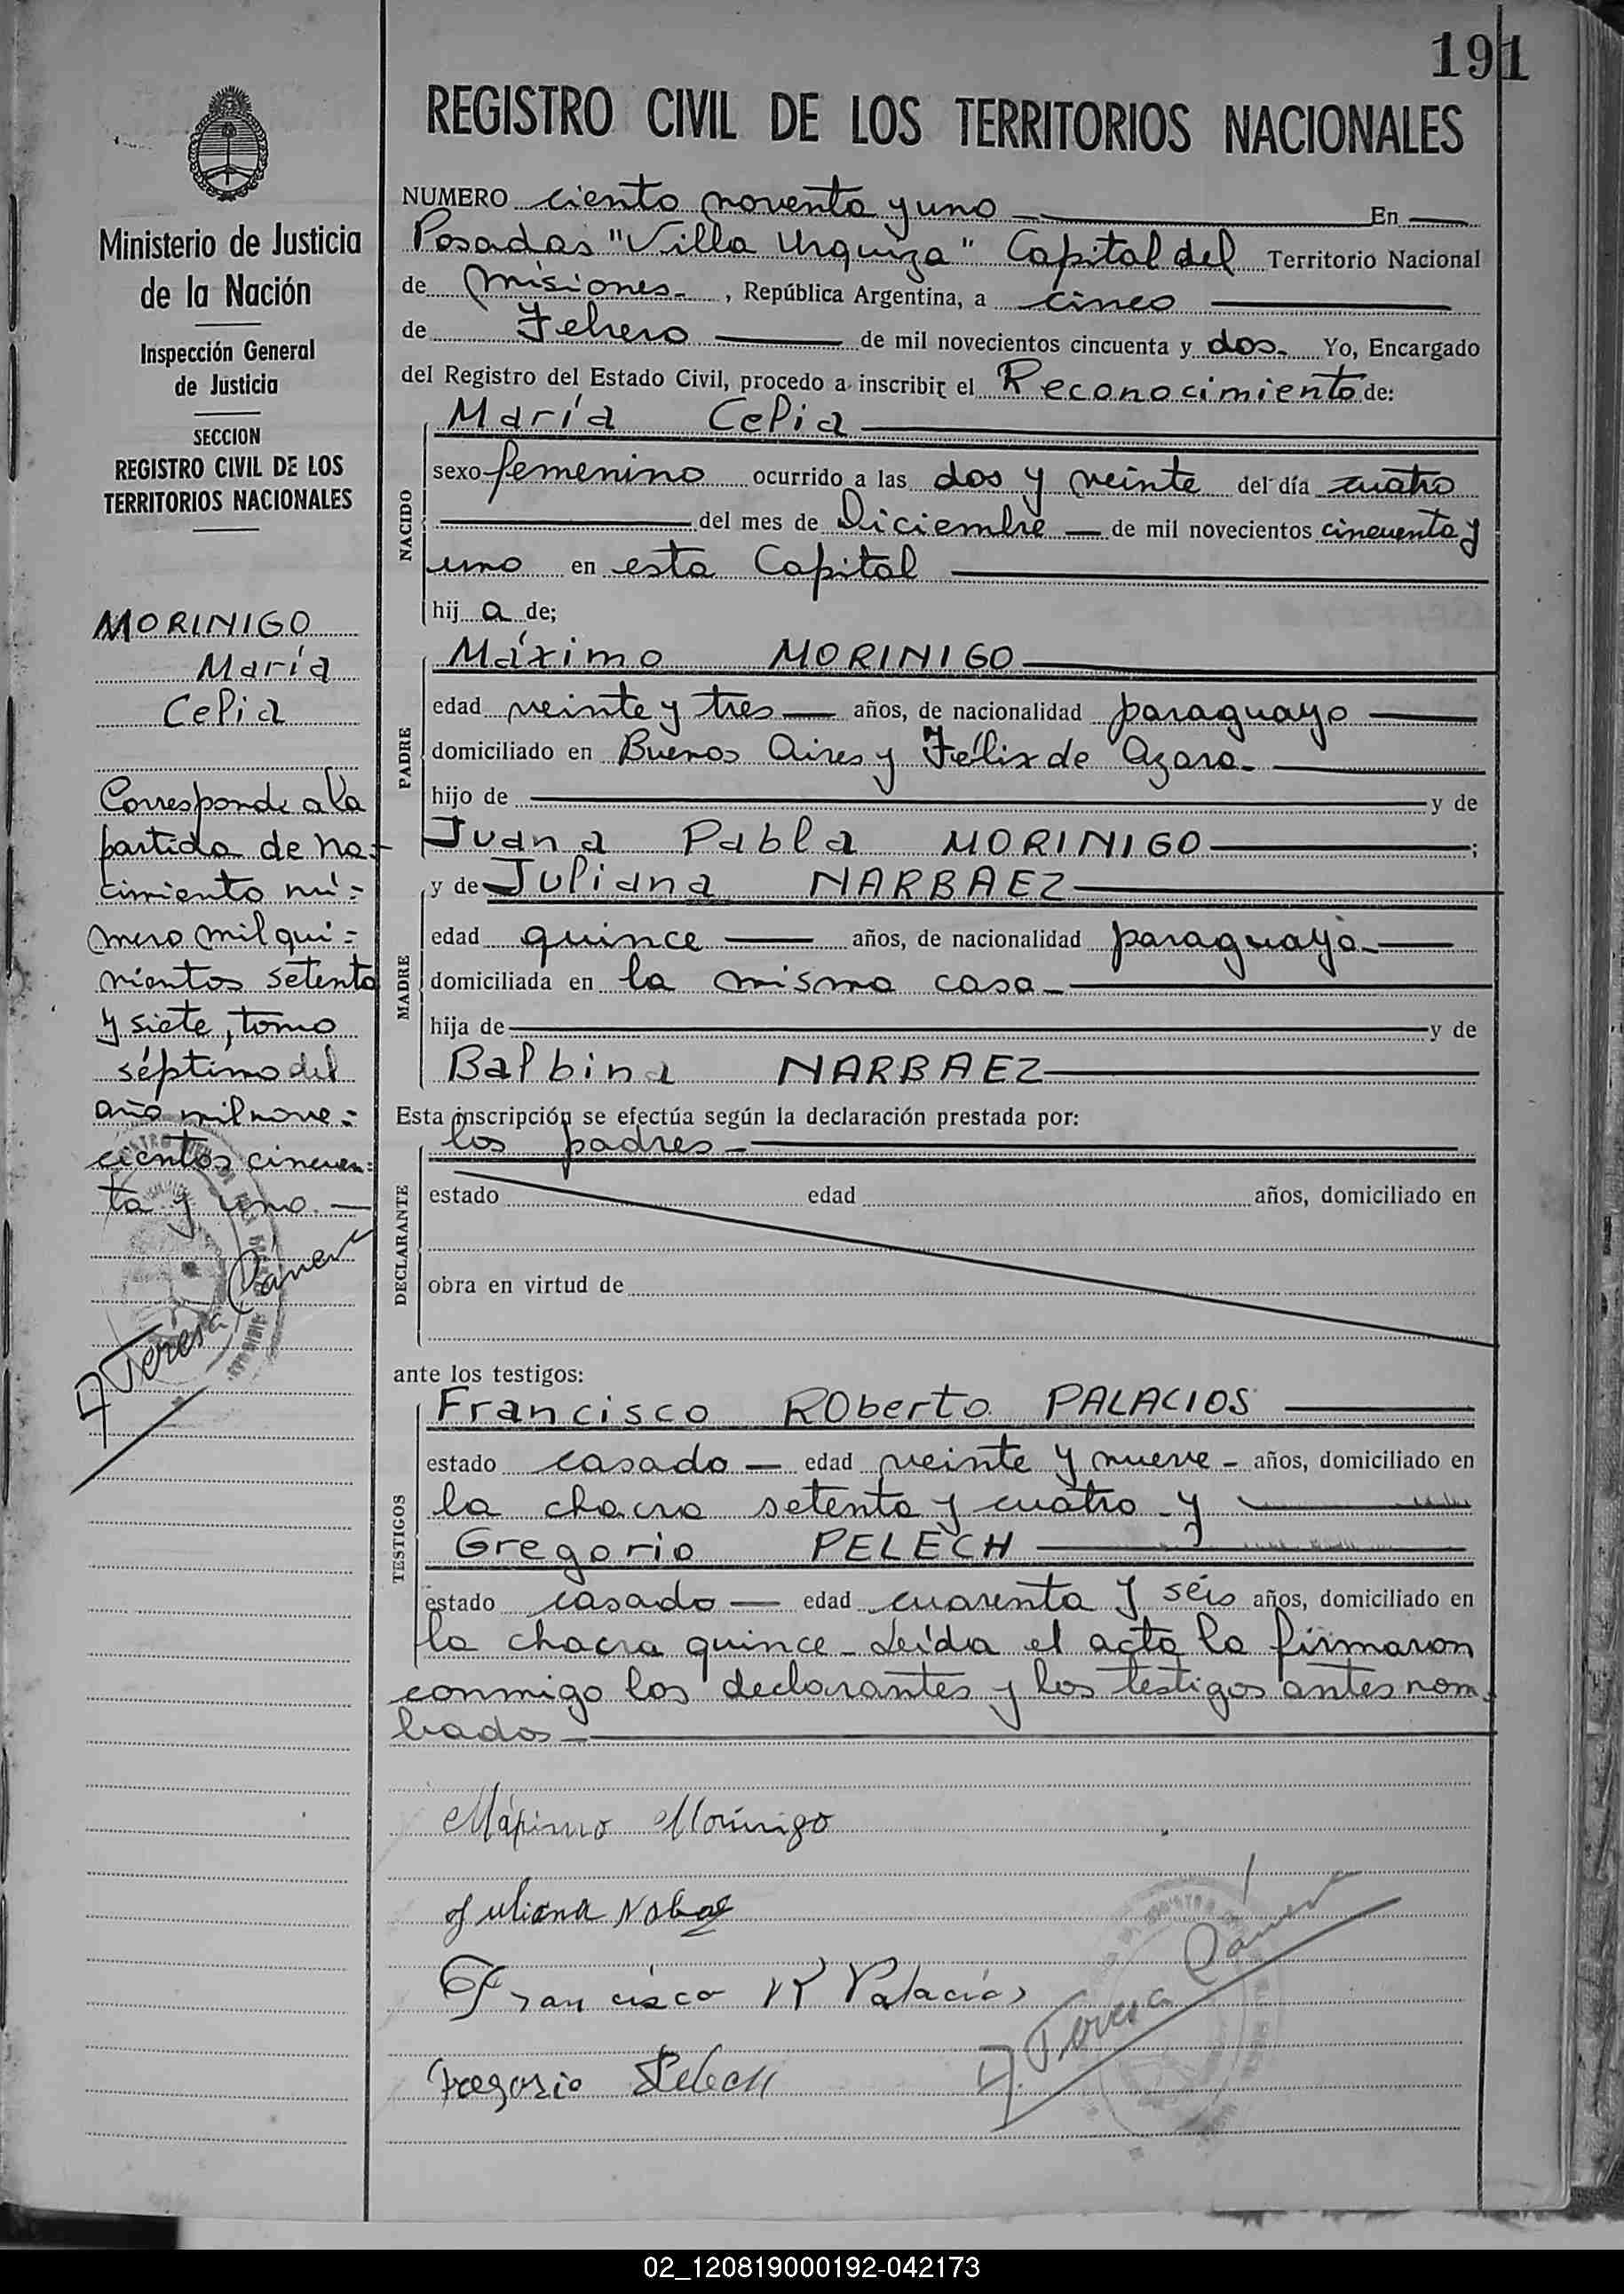 191
REGISTRO CIVIL DE LOS TERRITORIOS NACIONALES
Ministerio de Justicia
de la Nación
Inspección General
de Justicia
SECCION
REGISTRO CIVIL DE LOS
TERRITORIOS NACIONALES
MORINIGO
María
Celia
Corresponde a la
partida de na-
cimiento nú=
mero mil qui=
nientos setenta
y siete, tomo
séptimo del
año mil nove=
cientos cincuen=
ta y uno. —
NUMERO ciento noventa y uno — En —
Posadas "Villa Urquiza" Capital del Territorio Nacional
de Misiones-, República Argentina, a cinco —
de Febrero — de mil novecientos cincuenta y dos- Yo, Encargado
del Registro del Estado Civil, procedo a inscribir el Reconocimiento de:
María Celia —
NACIDO
sexo femenino ocurrido a las dos y veinte del día cuatro
— del mes de Diciembre — de mil novecientos cincuenta y
uno en esta Capital —
hij a de;
Máximo MORINIGO —
PADRE
edad veinte y tres — años, de nacionalidad paraguayo —
domiciliado en Buenos Aires y Félix de Azara- —
hijo de — y de
Juana Pabla MORINIGO — ;
y de Juliana NARBAEZ —
MADRE
edad quince — años, de nacionalidad paraguaya —
domiciliada en la misma casa- —
hija de — y de
Balbina NARBAEZ —
Esta inscripción se efectúa según la declaración prestada por:
los padres- —
DECLARANTE
estado edad años, domiciliado en
obra en virtud de
ante los testigos:
Francisco ROberto PALACIOS —
TESTIGOS
estado casado — edad veinte y nueve - años, domiciliado en
la chacra setenta y cuatro - y —
Gregorio PELECH —
estado casado — edad cuarenta y seis años, domiciliado en
la chacra quince - Leída el acta la firmaron
conmigo los declarantes y los testigos antes nom-
brados- —
Máximo Morinigo
Juliana
Francisco R Palacios
Gregorio Pelech
Teresa
02_120819000192-042173